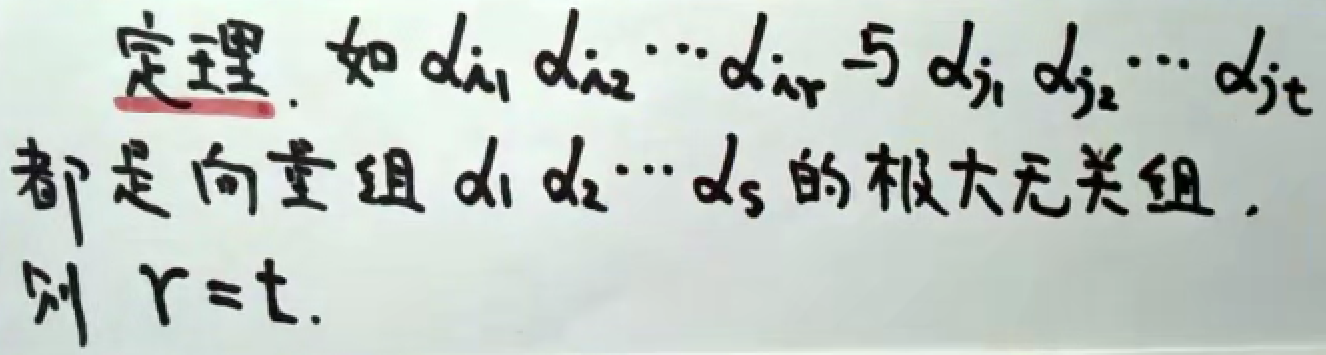 定理. 如 αi1 αi2 ⋯ αir 与 αj1 αj2 ⋯ αjt
都是向量组 α1 α2 ⋯ αs 的极大无关组.
则 r=t.